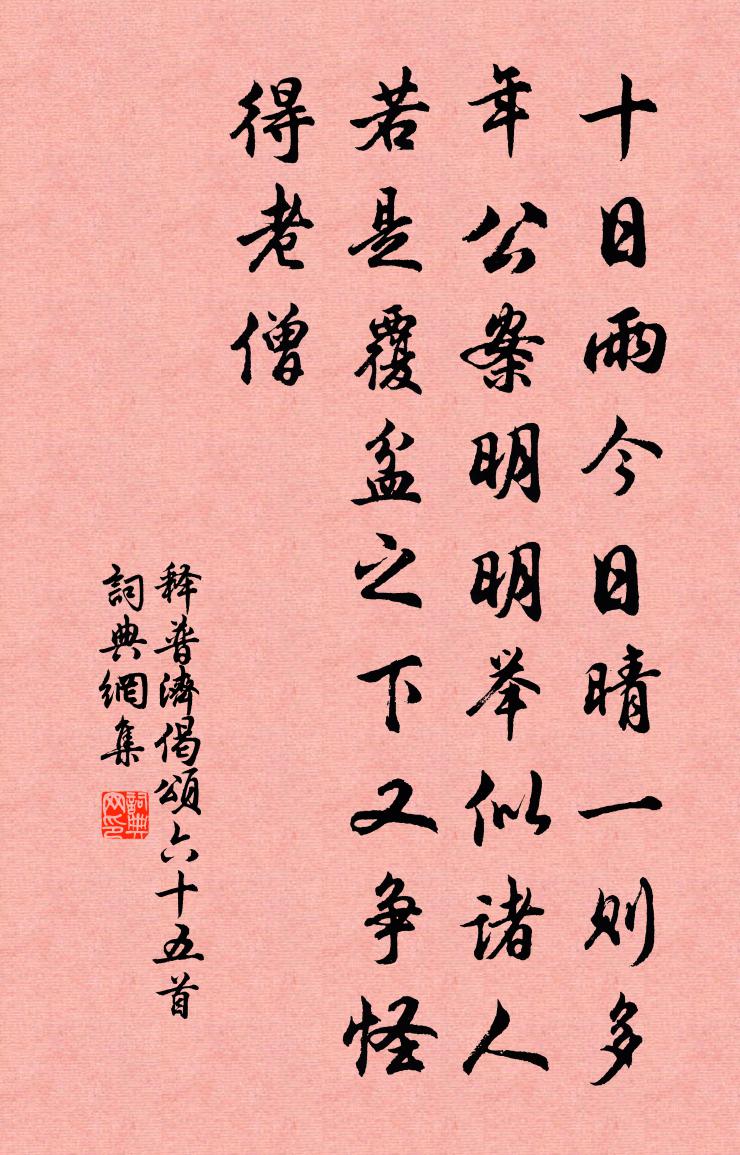 十日雨今日晴一则多
年公案明明举似诸人
若是覆盆之下又争怪
得老僧
释普濟偈頌六十五首
詞典網集
詞典网印